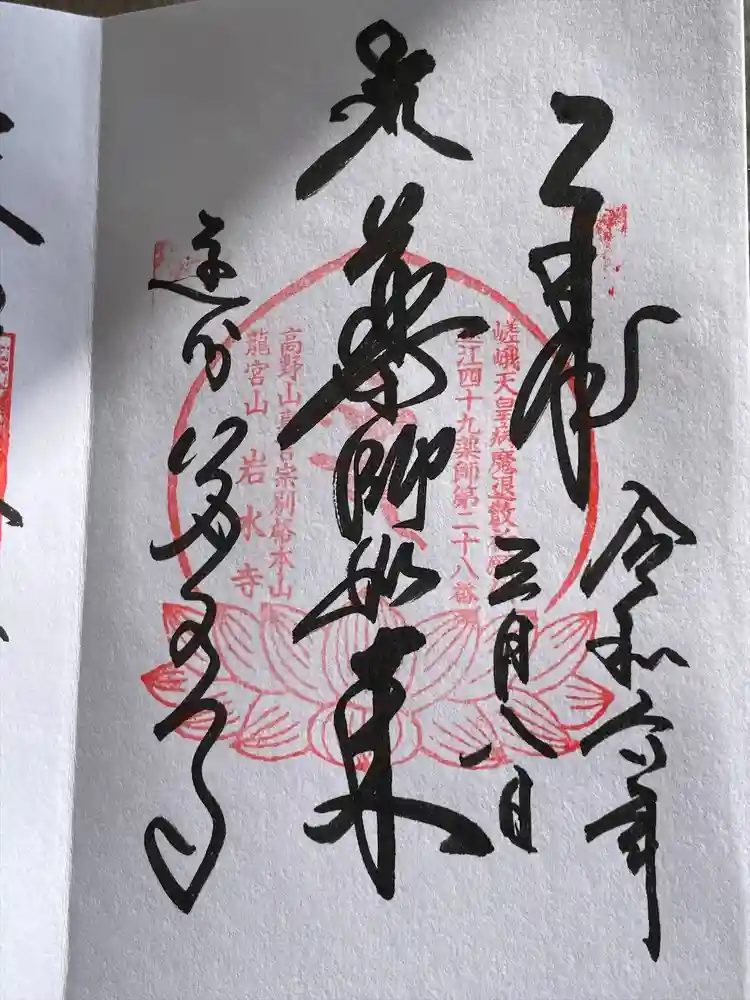 奉拝
令和六年
三月八日
嵯峨天皇病魔退散
遠江四十九薬師第二十八番
薬師如来
高野山真言宗別格本山
龍宮山 岩水寺
遠州
岩水寺